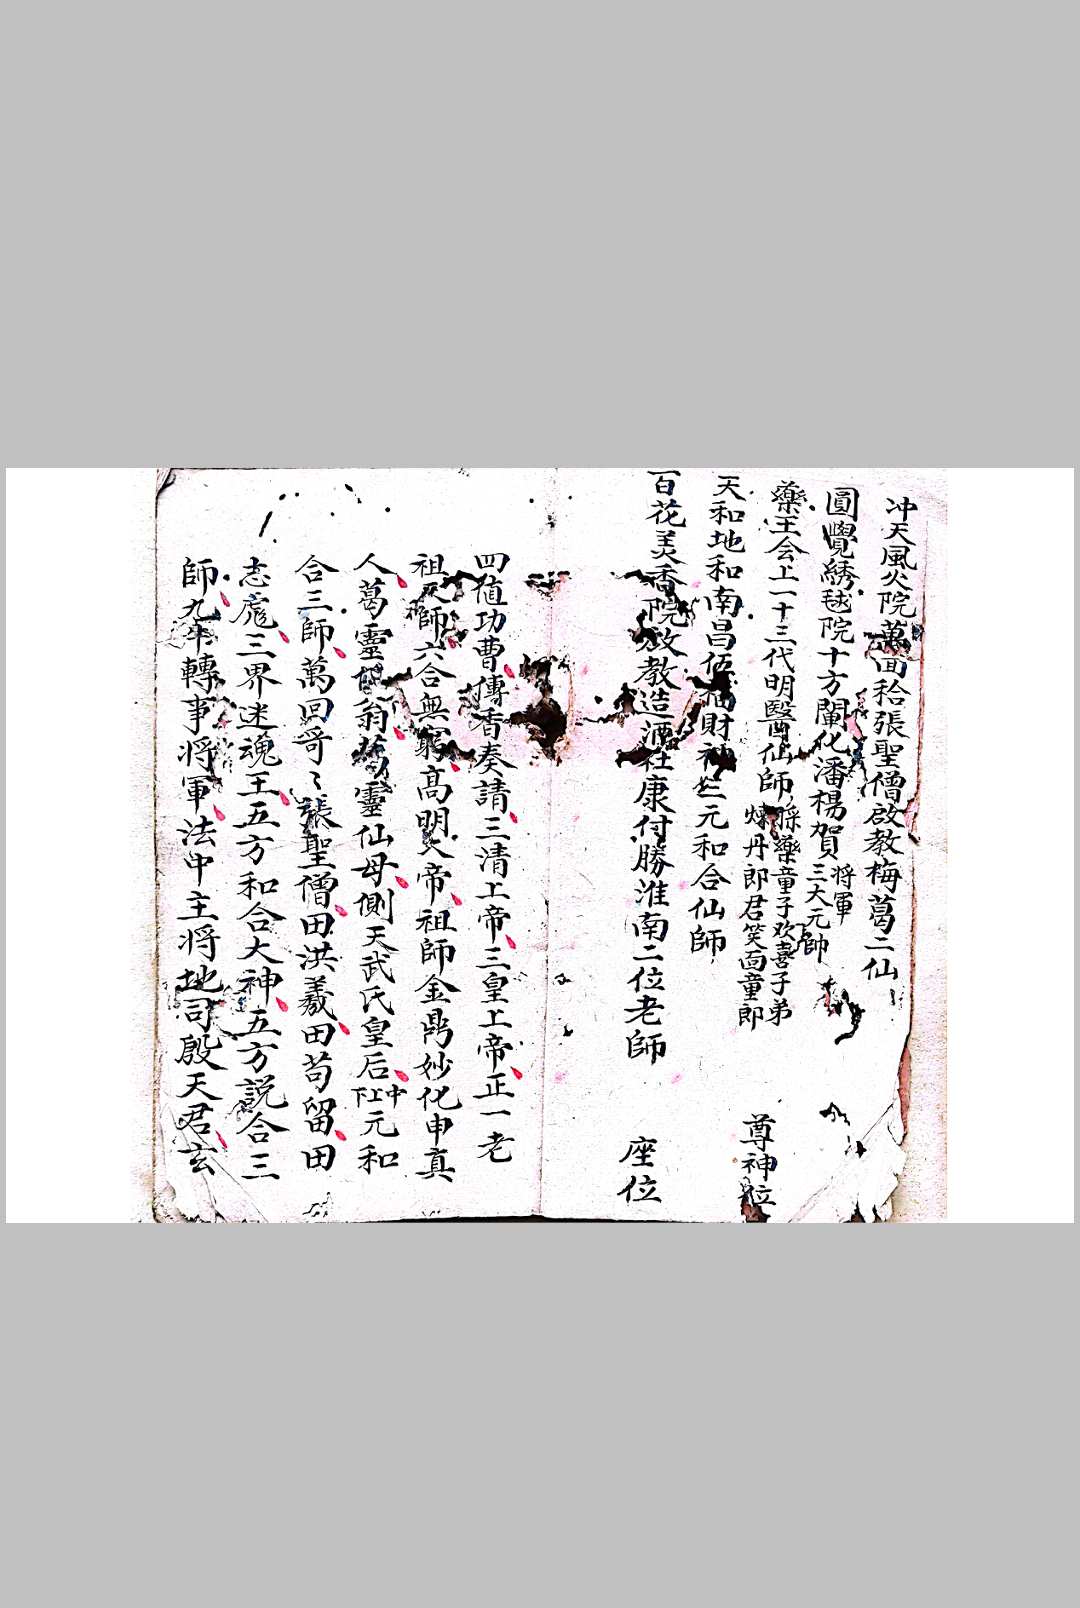 冲天風火院萬回拾張聖僧啟教梅葛二仙
圓覺綉毬院十方闡化潘楊賀將軍三大元帥
藥王会上一十三代明醫仙師採藥童子欢喜子弟
煉丹郎君笑面童郎
尊神位
天和地和南昌伍福財神三元和合仙師
百花美香院放教造酒杜康付勝淮南二位老師
座位
四值功曹傳香奏請三清上帝三皇上帝正一老
祖天師六合無窮高明大帝祖師金鼎妙化申真
人葛靈仙翁葛靈仙母側天武氏皇后上中下元和
合三師萬回哥〻張聖僧田洪義田苟留田
志鹿三界迷魂王五方和合大神五方説合三
師九牛轉事将軍法中主将地司殷天君玄